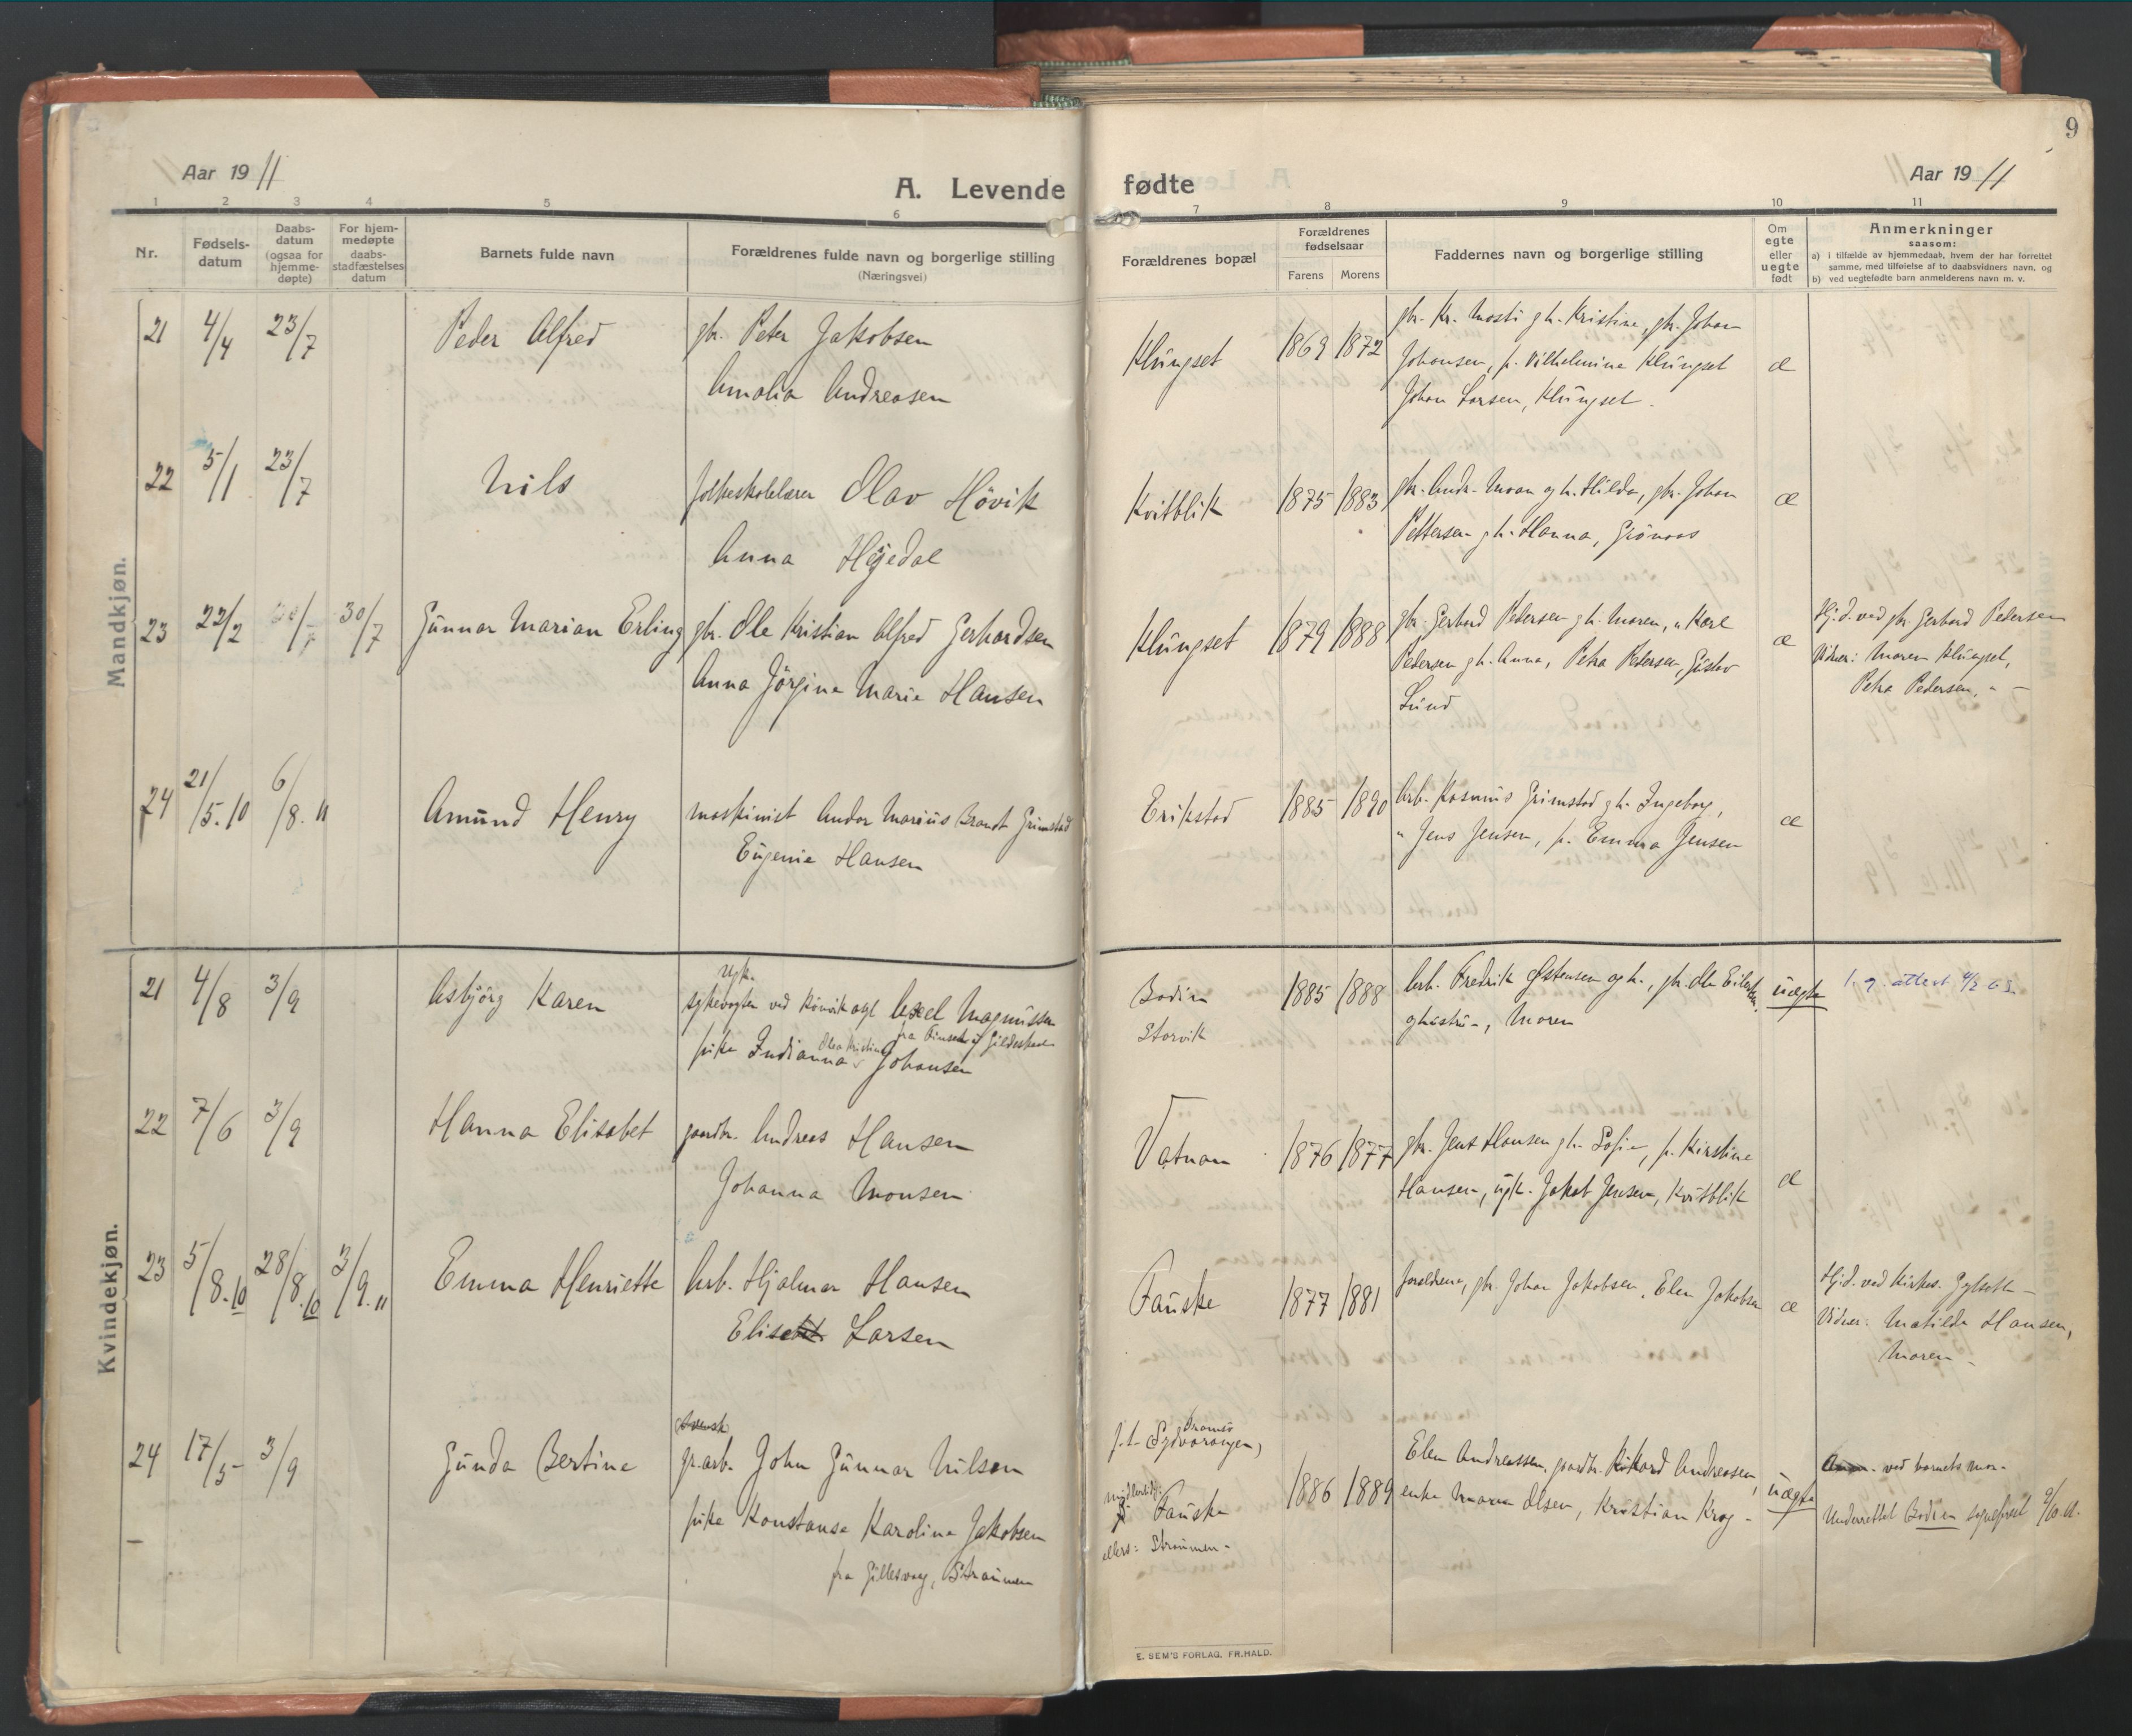 9
Aar 1911
A. Levende fødte
Aar 1911
1 2 3 4 5 6 7 8 9 10 11
Nr.
Fødsels-
datum
Daabs-
datum
(ogsaa for
hjemme-
døpte)
For hjem-
medøpte
daabs-
stadfæstelses
datum
Barnets fulde navn
Forældrenes fulde navn og borgerlige stilling
(Næringsvei)
Forældrenes bopæl
Forældrenes
fødselsaar
Farens Morens
Faddernes navn og borgerlige stilling
Om
egte
eller
uegte
født
Anmerkninger
saasom:
a) i tilfælde av hjemmedaab, hvem der har forrettet
samme, med tilføielse af to daabsvidners navn, og
b) ved uegtefødte barn anmelderens navn m. v.
Mandkjøn.
21 4/4 23/7 Peder Alfred gbr. Peter Jakobsen
Amalia Andreasen
Klungset 1869 1872 gbr. Kr. Mosti gh. Kristine, gbr. Johan
Johansen, p. Vilhelmine Klungset
Johan Larsen, Klungset.
æ
22 5/1 23/7 Nils folkeskolelærer Olav Hövik
Anna Hegedal
Kvitblik 1875 1883 gbr. Andr. Moan og h. Hilda, gbr. Johan
Pettersen gh. Hanna, Grönaas
æ
23 22/2 30/7 Gunnar Marian Erling gbr. Ole Kristian Alfred Gerhardsen
Anna Jörgine Marie Hansen
Klungset 1879 1888 gbr. Gerhard Pedersen gh. Maren, " Karl
Pedersen gh. Anna, Petra Pedersen, Gustav
Lund
æ
Hj.d. ved gbr. Gerhard Pedersen
Vidner: Maren Klungset,
Petra Pedersen, " –
24 21/5.10 6/8.11 Amund Henry maskinist Andor Marius Brandt Grimstad
Eugenie Hansen
Erikstad 1885 1890 Arb. Rasmus Grimstad gh. Ingeborg,
" Jens Jensen, p. Emma Jensen
æ
Kvindekjøn.
21 4/8 3/9 Asbjörg Karen
ugk.
sykevogter ved Rönvik asyl Axel Magnussen
fra Gildeskaal
pike Indianna Olea Kristine Johansen
Bodin
Storvik
1885 1888 Arb. Fredrik Østensen og h., gbr. Ole Eilertsen
og hustru, Moren
uægte
22 7/6 3/9 Hanna Elisabet gaardbr. Andreas Hansen
Johanna Monsen
Vatnan 1876 1877 gbr. Jens Hansen gh. Sofie, p. Kirstine
Hansen, ugk. Jakob Jensen, Kvitblik
æ
23 5/8.10 28/8.10 3/9.11 Emma Henriette Arb. Hjalmar Hansen
Elise Larsen
Fauske 1877 1881 foreldrene, gbr. Johan Jakobsen, Elen Jakobsen
æ
Hj.d. ved kirkes.
Vidner: Matilde Hansen,
Moren
24 17/5 3/9 Gunda Bertine gr.arb. John Gunnar Nilsen
pike Konstanse Karoline Jakobsen
fra Gillesvaag, Straumen
p.t. Sydvaranger,
Tromsö
midlertidig:
Fauske
ellers: Straumen
1886 1889 Elen Andreassen, gaardbr. Rikard Andreasen,
enke Maren Olsen, Kristian Krog
uægte
ved barnets mor
Underrettet Bodin sogneprest 9/10.11.
E. SEM'S FORLAG, FR.HALD.